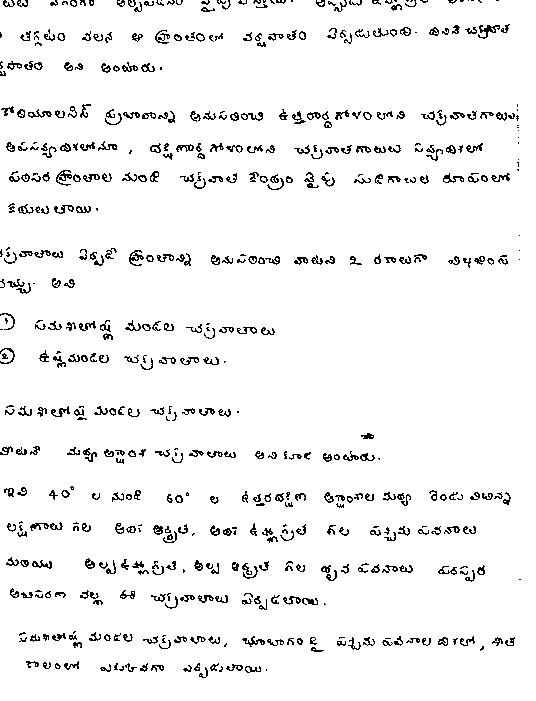 తగ్గటం వలన ఆ ప్రాంతంలో వర్షపాతం ఏర్పడుతుంది. దీనినే చక్రవాత
అని అంటారు.
కోరియాలసిస్ ప్రభావాన్ని అనుసరించి ఉత్తరార్ధగోళంలోని చక్రవాతగాలులు
అపసవ్యదిశలోనూ, దక్షిణార్ధ గోళంలోని చక్రవాతగాలులు సవ్యదిశలో
పరిసర ప్రాంతాల నుండి చక్రవాత కేంద్రం వైపు సుడిగాలుల రూపంలో
కదులుతాయి.
చక్రవాతాలు ఏర్పడే ప్రాంతాన్ని అనుసరించి వాటిని 2 రకాలుగా విభజించ
వచ్చు. అవి
① సమశీతోష్ణ మండల చక్రవాతాలు
② ఉష్ణమండల చక్రవాతాలు.
సమశీతోష్ణ మండల చక్రవాతాలు.
వీటినే మధ్య అక్షాంశ చక్రవాతాలు అనికూడ అంటారు.
ఇవి 40° ల నుండి 60° ల ఉత్తరదక్షిణ అక్షాంశాల మధ్య రెండు విభిన్న
లక్షణాలు గల అతి ఆర్ద్రత, అతి ఉష్ణోగ్రత గల పశ్చిమ పవనాలు
మరియు అల్పఉష్ణోగ్రత, అల్ప ఆర్ద్రత గల ధృవ పవనాలు పరస్పర
అభిసరణ వల్ల ఈ చక్రవాతాలు ఏర్పడతాయి.
సమశీతోష్ణ మండల చక్రవాతాలు, భూభాగంపై పశ్చిమ పవనాల దిశలో, శీత
కాలంలో ఎక్కువగా ఏర్పడుతాయి.